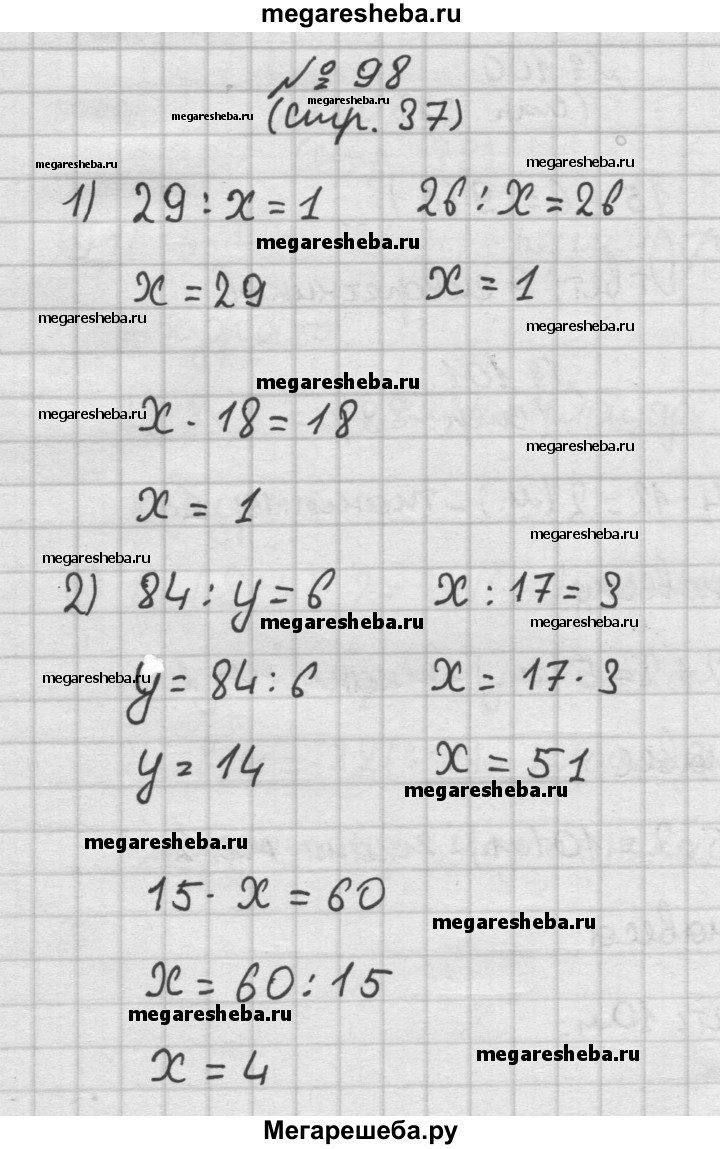 megaresheba.ru
№ 98
megaresheba.ru
megaresheba.ru (стр. 37)
megaresheba.ru megaresheba.ru
1) 29 : x = 1 26 : x = 26
megaresheba.ru
x = 29 x = 1
megaresheba.ru megaresheba.ru
megaresheba.ru
megaresheba.ru x · 18 = 18
megaresheba.ru
x = 1
megaresheba.ru
megaresheba.ru
2) 84 : y = 6 x : 17 = 3
megaresheba.ru megaresheba.ru
megaresheba.ru y = 84 : 6 x = 17 · 3
y = 14 x = 51
megaresheba.ru
megaresheba.ru
15 · x = 60
megaresheba.ru
x = 60 : 15
megaresheba.ru
x = 4 megaresheba.ru
Мегарешеба.ру